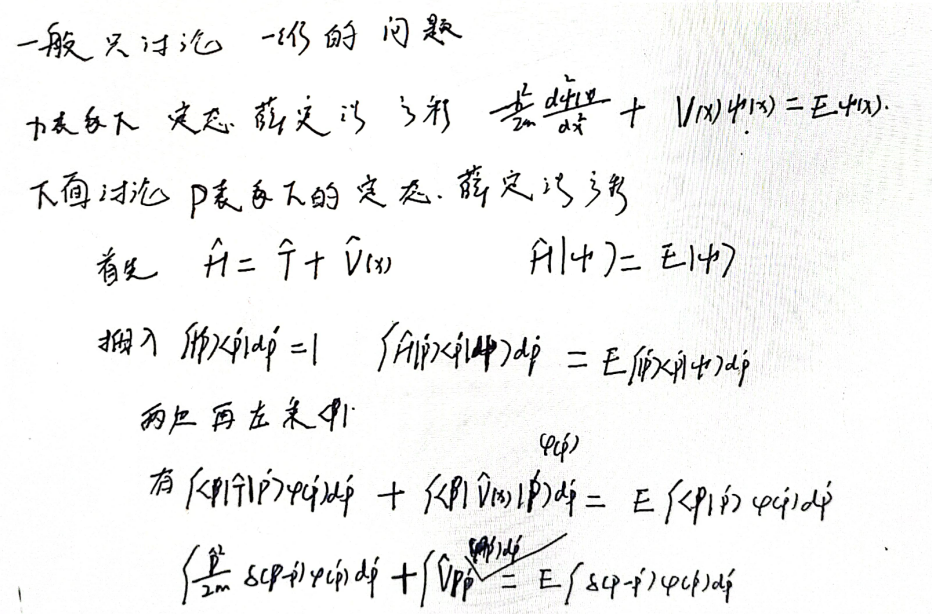 一般只讨论 一维的问题
力表象下 定态 薛定谔方程 -ħ²/2m d²ψ(x)/dx² + V(x)ψ(x) = Eψ(x).
下面讨论 p表象下的定态.薛定谔方程
首先 Ĥ = T̂ + V̂(x) Ĥ|ψ⟩ = E|ψ⟩
插入 ∫|p'⟩⟨p'|dp' = 1 ∫Ĥ|p'⟩⟨p'|ψ⟩dp' = E∫|p'⟩⟨p'|ψ⟩dp'
两边再左乘⟨p|
有 ∫⟨p|T̂|p'⟩φ(p')dp' + ∫⟨p|V̂(x)|p'⟩φ(p')dp' = E∫⟨p|p'⟩φ(p')dp'
∫p'²/2m δ(p-p')φ(p')dp' + ∫V̂pp'φ(p')dp' = E∫δ(p-p')φ(p')dp'